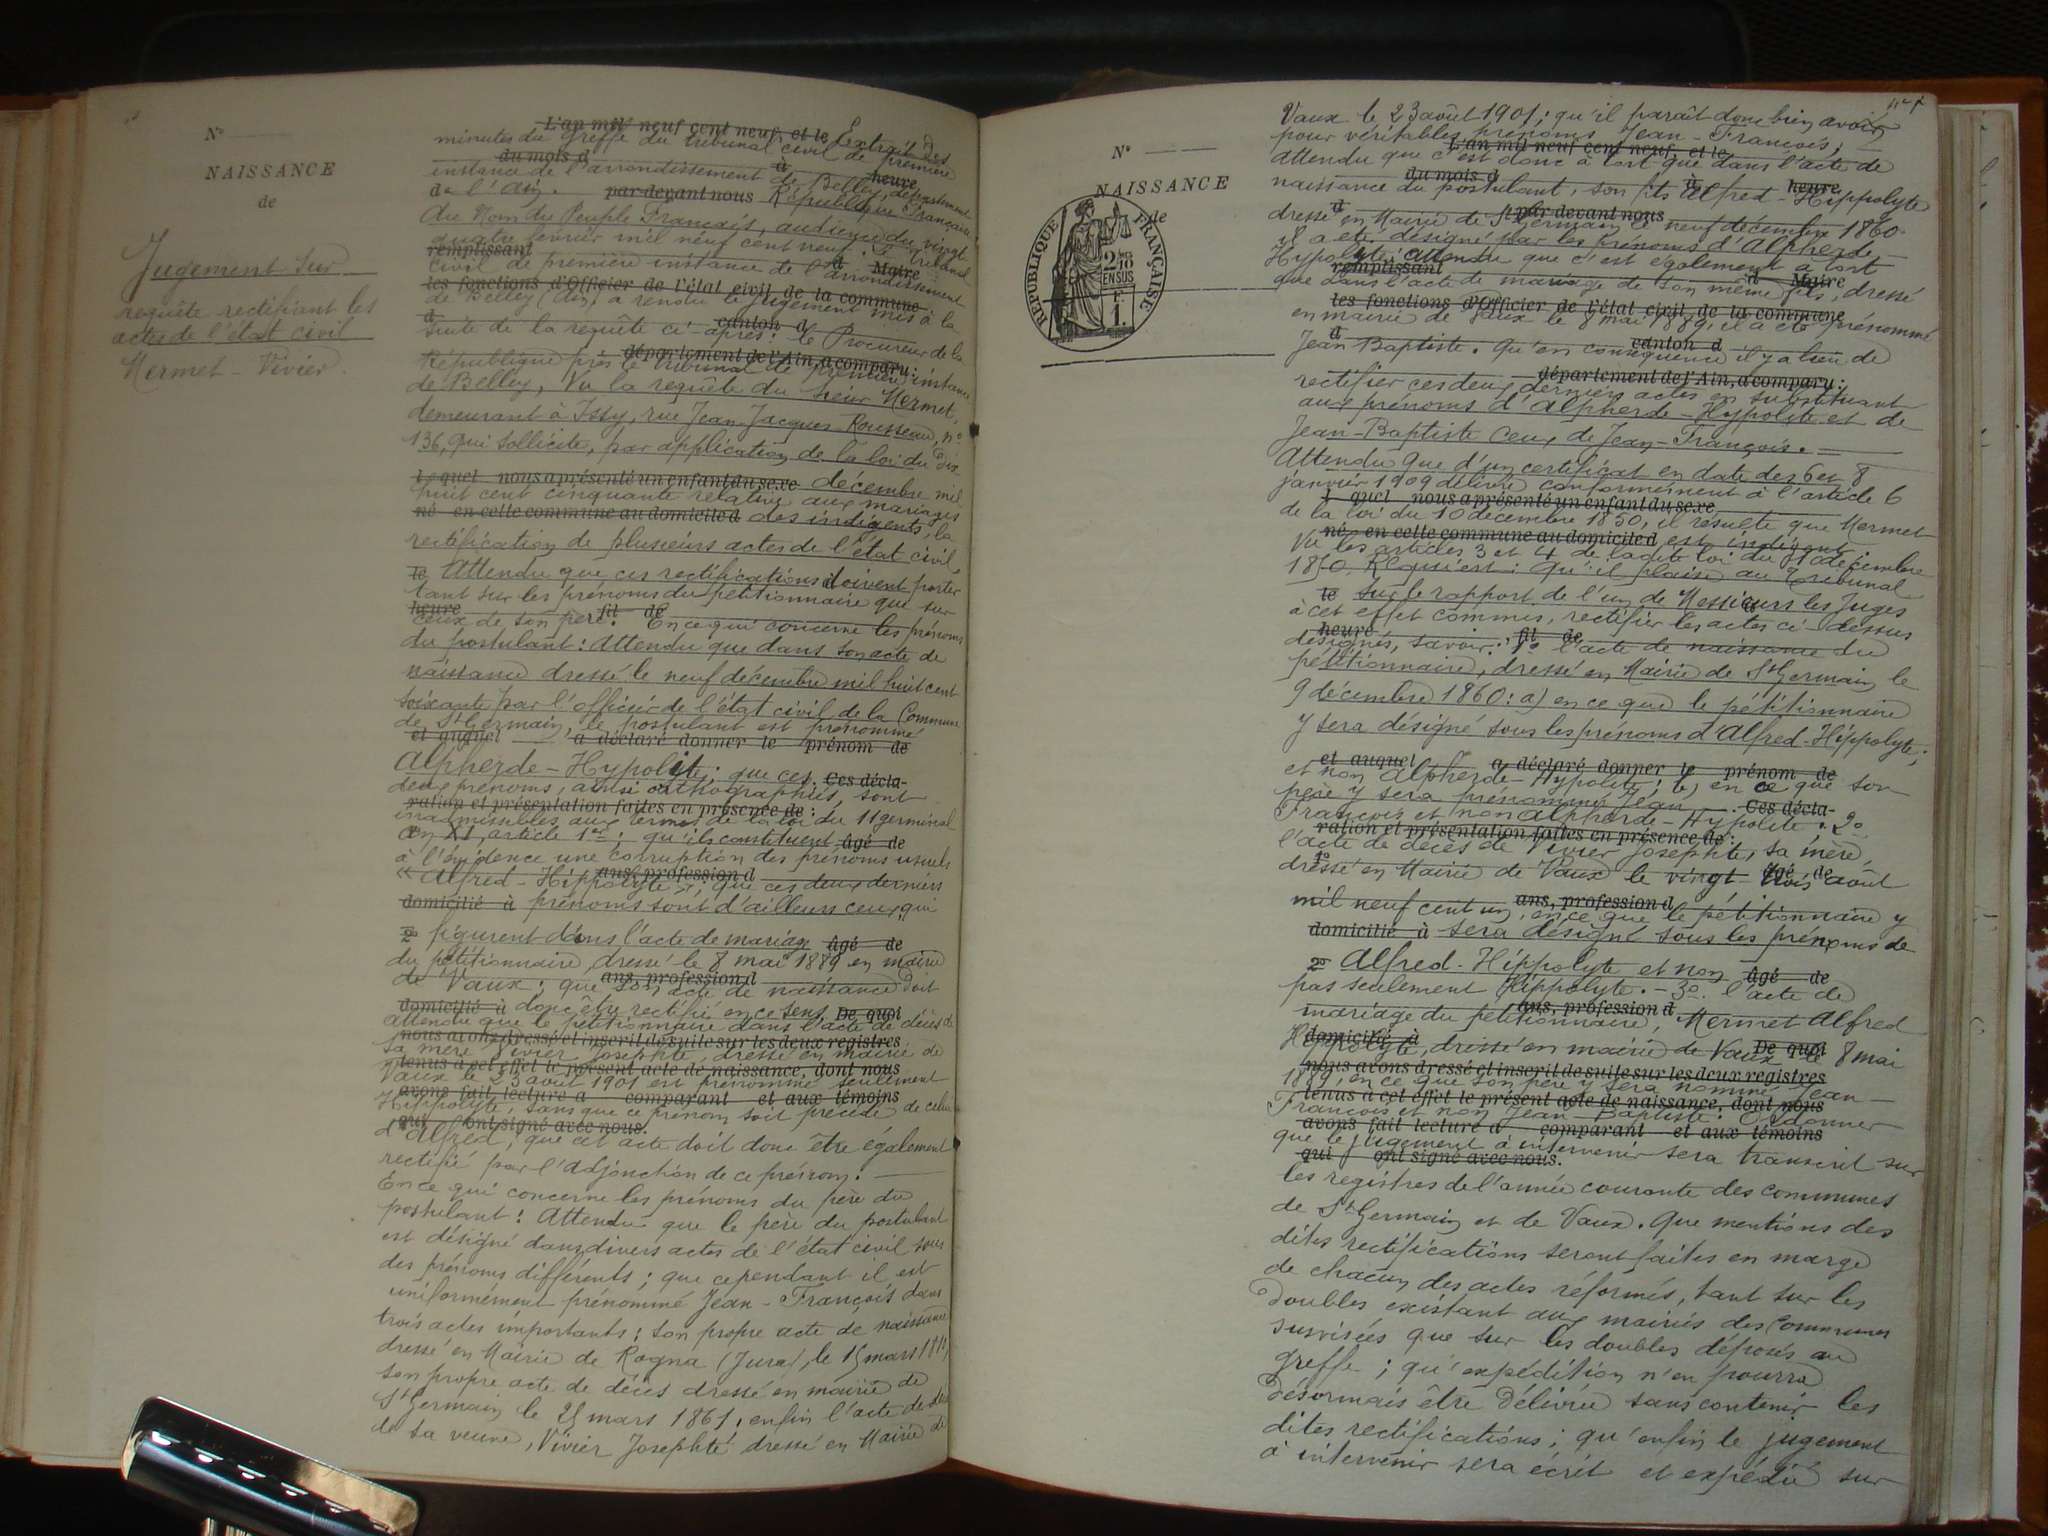 N°
NAISSANCE
de
Jugement sur
requête rectifiant les
actes de l'état civil
Mermet - Vivier.
L'an mil neuf cent neuf, et le Extrait des
minutes du Greffe du tribunal civil de première
du mois d à heure
instance de l'arrondissement de Belley, département
de l'Ain. par-devant nous République Française
Au Nom du Peuple Français, audience du vingt
quatre février mil neuf cent neuf. Le tribunal
remplissant d Maire
civil de première instance de l'arrondissement
les fonctions d'Officier de l'état civil de la commune
de Belley (Ain) a rendu le jugement mis à la
d canton d
suite de la requête ci-après: le Procureur de la
département de l'Ain, a comparu:
République près le tribunal de première instance
de Belley, Vu la requête du sieur Mermet,
demeurant à Issy, rue Jean-Jacques Rousseau, n°
136, qui sollicite, par application de la loi du dix
lequel nous a présenté un enfant du sexe décembre mil
huit cent cinquante relative aux mariages
né en cette commune au domicile d des indigents, la
rectification de plusieurs actes de l'état civil.
le Attendu que ces rectifications doivent porter
tant sur les prénoms du pétitionnaire que sur
heure fil de
ceux de son père. En ce qui concerne les prénoms
du postulant: Attendu que dans son acte de
naissance dressé le neuf décembre mil huit cent
soixante par l'officier de l'état civil de la Commune
de St Germain, le postulant est prénommé
et auquel a déclaré donner le prénom de
Alpherde - Hypolite; que ces Ces décla-
deux prénoms, ainsi orthographiés, sont
ration et présentation faites en présence de:
inadmissibles aux termes de la loi du 11 germinal
an XI, article 1er; qu'ils constituent âgé de
à l'évidence une corruption des prénoms usuels
ans, profession d
« Alfred - Hippolyte »; que ces deux derniers
domicilié à prénoms sont d'ailleurs ceux qui
2° figurent dans l'acte de mariage âgé de
du pétitionnaire, dressé le 8 mai 1889 en mairie
ans, profession d
de Vaux; que son acte de naissance doit
domicilié à donc être rectifié en ce sens. De quoi
Attendu que le pétitionnaire dans l'acte de décès de
nous avons dressé et inscrit de suite sur les deux registres
sa mère Vivier Josephte, dressé en mairie de
tenus à cet effet le présent acte de naissance, dont nous
Vaux le 23 août 1901 est prénommé seulement
avons fait lecture a comparant et aux témoins
Hippolyte, sans que ce prénom soit précédé de celui
qui ont signé avec nous.
d'Alfred; que cet acte doit donc être également
rectifié par l'adjonction de ce prénom.
En ce qui concerne les prénoms du père du
postulant: Attendu que le père du postulant
est désigné dans divers actes de l'état civil sous
des prénoms différents; que cependant il est
uniformément prénommé Jean - François dans
trois actes importants: son propre acte de naissance
dressé en Mairie de Rogna (Jura), le 15 mars
son propre acte de décès dressé en mairie de
St Germain le 25 mars 1861, enfin l'acte de
de sa veuve, Vivier Josephte dressé en Mairie de
N°
NAISSANCE
de
RÉPUBLIQUE FRANÇAISE
2/10
EN SUS
1 F.
Vaux le 23 août 1901; qu'il paraît donc bien avoir
pour véritables prénoms Jean - François;
L'an mil neuf cent neuf, et le
Attendu que c'est donc à tort que dans l'acte de
du mois d à heure
naissance du postulant, son fils Alfred - Hippolyte
d par devant nous
dressé en Mairie de St Germain le neuf décembre 1860
il a été désigné par les prénoms d'Alpherde -
Hypolite; attendu que c'est également à tort
remplissant d Maire
que dans l'acte de mariage de son même fils, dressé
les fonctions d'Officier de l'état civil de la commune
en mairie de Vaux le 8 mai 1889, il a été prénommé
d canton d
Jean Baptiste. Qu'en conséquence il y a lieu de
département de l'Ain, a comparu:
rectifier ces deux derniers actes en substituant
aux prénoms d'Alpherde - Hypolite et de
Jean - Baptiste ceux de Jean - François.
Attendu que d'un certificat en date des 6 et 8
janvier 1909 délivré conformément à l'article 6
lequel nous a présenté un enfant du sexe
de la loi du 10 décembre 1850, il résulte que Mermet
né en cette commune au domicile d est indigent;
Vu les articles 3 et 4 de la dite loi du 10 décembre
1850. Requiert: Qu'il plaise au Tribunal
le sur le rapport de l'un de Messieurs les Juges
à cet effet commis, rectifier les actes ci-dessus
heure fil de
désignés, savoir: 1° l'acte de naissance du
pétitionnaire, dressé en Mairie de St Germain le
9 décembre 1860: a) en ce que le pétitionnaire
y sera désigné sous les prénoms d'Alfred - Hippolyte;
et auquel a déclaré donner le prénom de
et non Alpherde - Hypolite; b) en ce que son
père y sera prénommé Jean Ces décla-
François et non Alpherde - Hypolite. 2°
ration et présentation faites en présence de:
l'acte de décès de Vivier Josephte, sa mère,
1° âgé de
dressé en Mairie de Vaux le vingt trois août
ans, profession d
mil neuf cent un, en ce que le pétitionnaire y
domicilié à sera désigné sous les prénoms de
2° Alfred - Hippolyte et non âgé de
pas seulement Hippolyte. - 3° l'acte de
ans, profession d
mariage du pétitionnaire, Mermet Alfred
domicilié à De quoi
Hippolyte, dressé en mairie de Vaux le 8 mai
nous avons dressé et inscrit de suite sur les deux registres
1889, en ce que son père y sera nommé Jean -
tenus à cet effet le présent acte de naissance, dont nous
François et non Jean - Baptiste. Ordonner
avons fait lecture a comparant et aux témoins
que le jugement à intervenir sera transcrit sur
qui ont signé avec nous.
les registres de l'année courante des communes
de St Germain et de Vaux. Que mentions des
dites rectifications seront faites en marge
de chacun des actes réformés, tant sur les
doubles existant aux mairies des Communes
susvisées que sur les doubles déposés au
greffe; qu'expédition n'en pourra
désormais être délivrée sans contenir les
dites rectifications; qu'enfin le jugement
à intervenir sera écrit et expédié sur